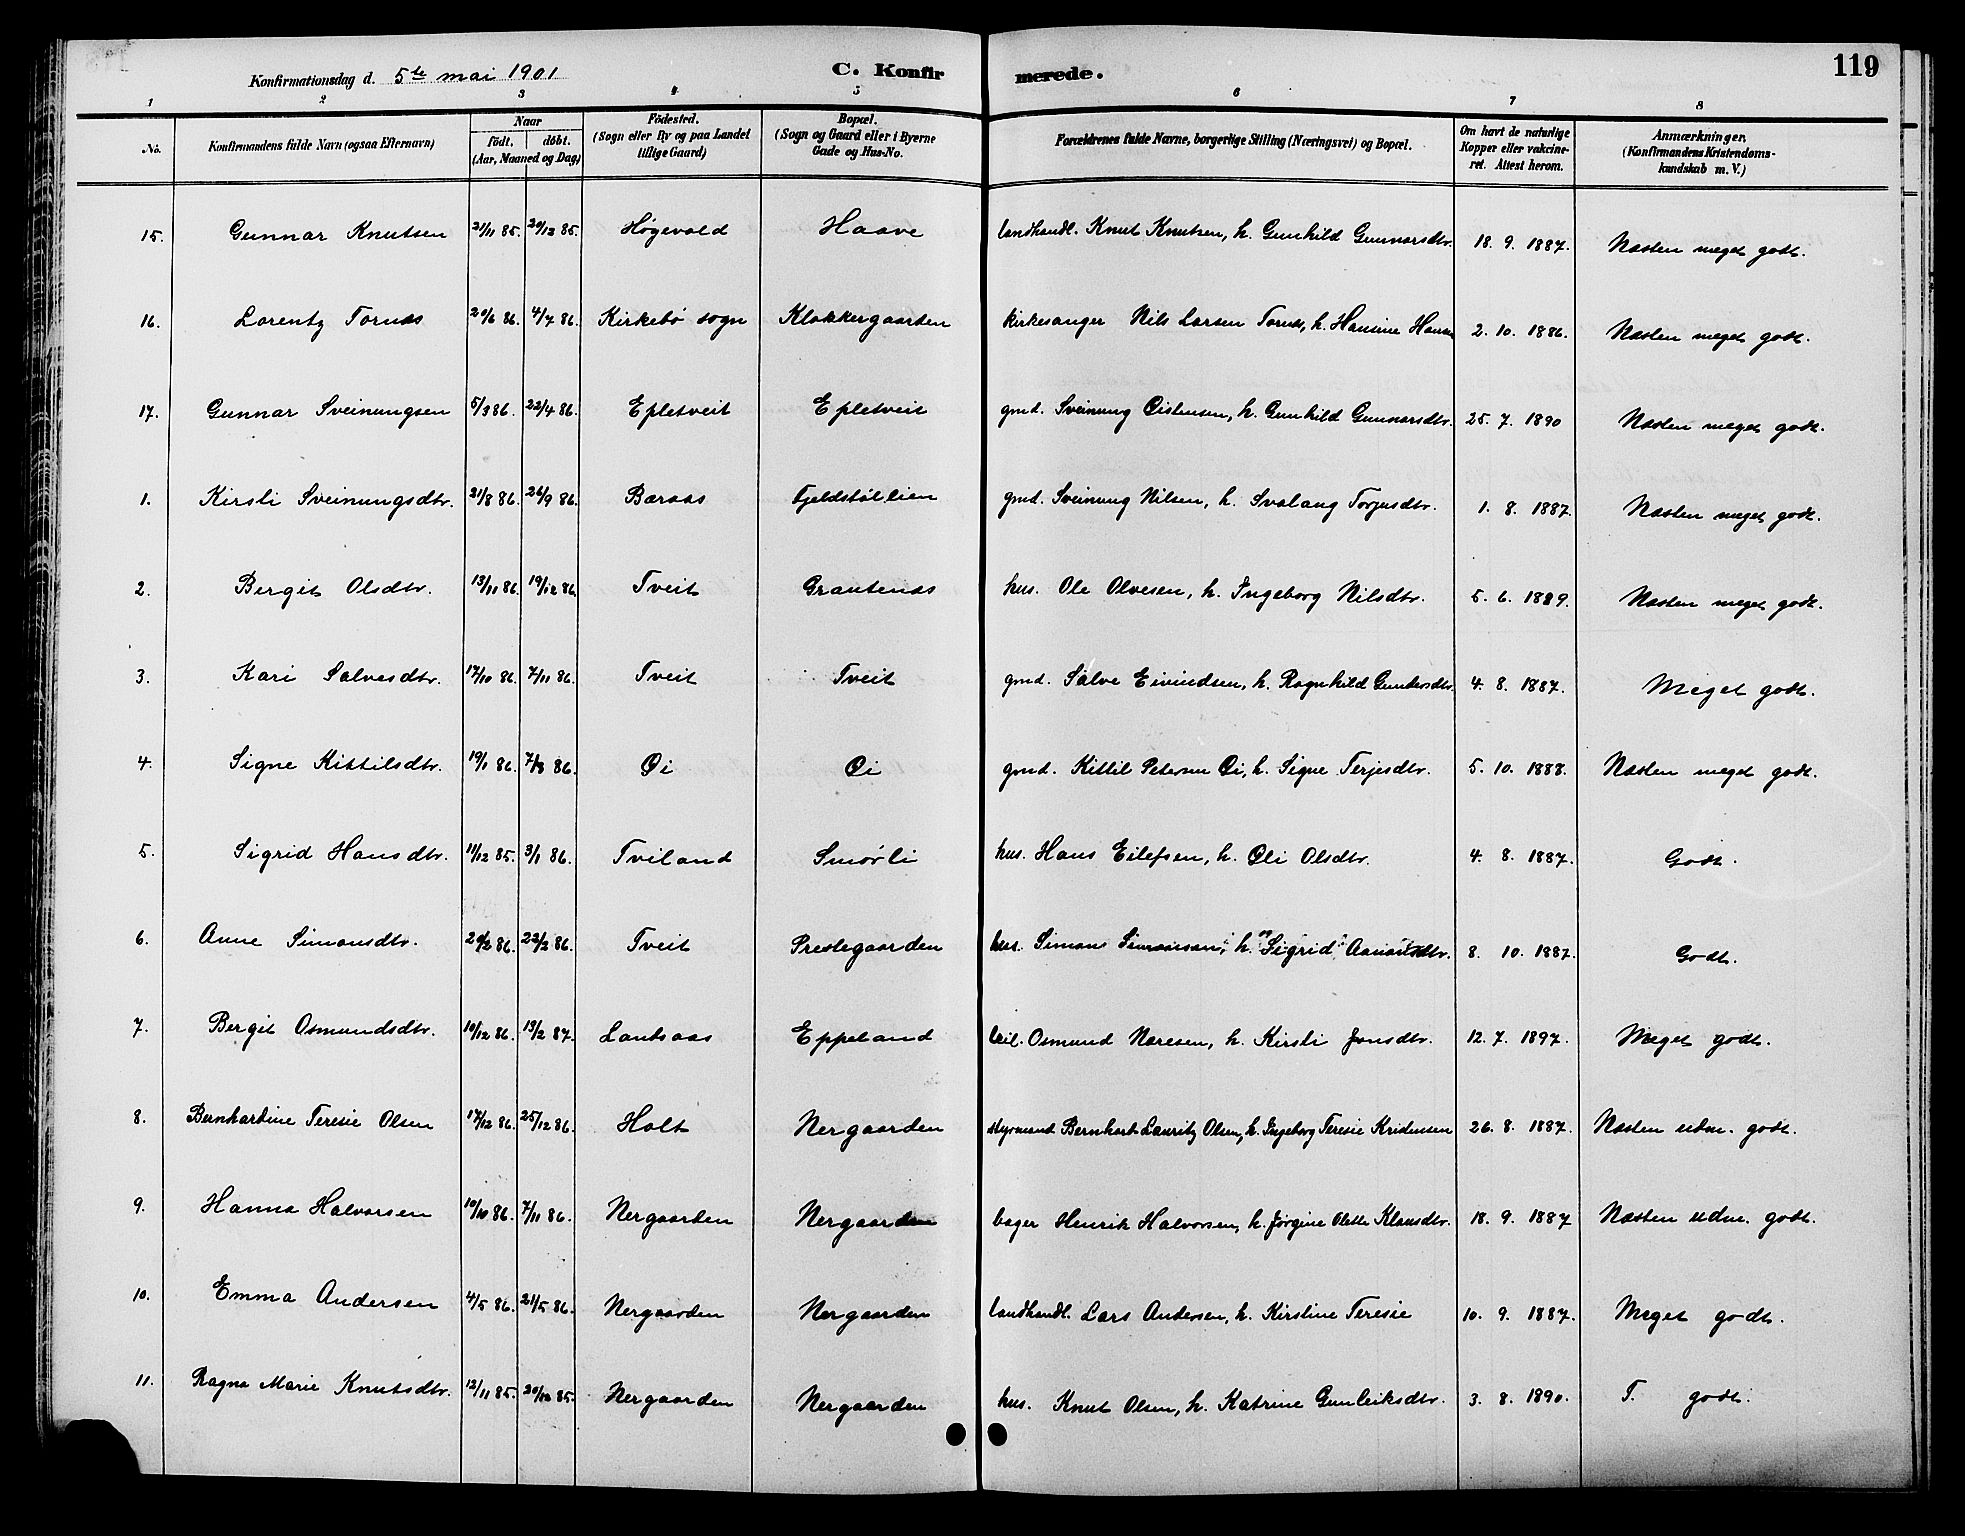 119
Konfirmationsdag d. 5te mai 1901 C. Konfirmerede.
1 2 3 4 5 6 7 8
No. Konfirmandens fulde Navn (ogsaa Efternavn) Naar födt. döbt. (Aar, Maaned og Dag) Födested. (Sogn eller By og paa Landet tillige Gaard) Bopæl. (Sogn og Gaard eller i Byerne Gade og Hus-No. Forældrenes fulde Navne, borgerlige Stilling (Næringsvei) og Bopæl. Om havt de naturlige Kopper eller vakcineret. Attest herom. Anmærkninger. (Konfirmandens Kristendomskundskab m. V.)
15. Gunnar Knutsen 21/11 85. 20/12 85. Høgevold Haave landhandl. Knut Knutsen, h. Gunhild Gunnarsdtr. 18. 9. 1887. Næsten meget godt.
16. Lorentz Tornæs 4/7 86. Kirkebø sogn Klokkergaarden kirkesanger Nils Larsen Tornæs, h. Hansine Hansen 2. 10. 1886. Næsten meget godt.
17. Gunnar Sveinungsen 5/3 86. 22/4 86. Epletveit Epletveit gmd. Sveinung Øistensen, h. Gunhild Gunnarsdtr. 25. 7. 1890 Næsten meget godt.
1. Kirsti Sveinungsdtr. 21/8 86. 26/9 86. Baraas Fjeldstølien gmd. Sveinung Nilsen, h. Svalaug Torjusdtr. 1. 8. 1887. Næsten meget godt.
2. Bergit Olsdtr. 13/11 86. 19/12 86. Tveit Grautenæs hus. Ole Olvesen, h. Ingeborg Nilsdtr. 5. 6. 1889. Næsten meget godt.
3. Kari Salvesdtr. 17/10 86. 7/11 86. Tveit Tveit gmd. Salve Eivindsen, h. Ragnhild Gundersdtr. 4. 8. 1887. Meget godt.
4. Signe Kittilsdtr. 19/1 86. 86. Øi Øi gmd. Kittil Petersen Øi, h. Signe Terjesdtr. 5. 10. 1888. Næsten meget godt.
5. Sigrid Hansdtr. 11/12 85. 3/1 86. Tviland Smørli hus. Hans Eilefsen, h. Oli Olsdtr. 4. 8. 1887. Godt.
6. Anne Simonsdtr. 86. 22/2 86. Tveit Prestegaarden hus. Simons Simonsen, h. Sigrid Aanonsdtr. 8. 10. 1887. Godt.
7. Bergit Osmundsdtr. 10/12 86. 13/2 87. Lautsaas Eppeland leil. Osmund Naresen, h. Kirsti Jonsdtr. 12. 7. 1897. Meget godt.
8. Bernhardine Teresie Olsen 17/12 86. 25/12 86. Holt Nergaarden styrmand Bernhart Lauritz Olsen, h. Ingeborg Teresie Kristensen 26. 8. 1887. Næsten udm. godt.
9. Hanna Halvorsen 10/10 86. 7/11 86. Nergaarden Nergaarden bager Henrik Halvorsen, h. Jørgine Olette Klausdtr. 18. 9. 1887 Næsten udm. godt.
10. Emma Andersen 4/5 86. 21/5 86. Nergaarden Nergaarden landhandl. Lars Andersen, h. Kirstine Teresie 10. 9. 1887. Meget godt.
11. Ragna Marie Knutsdtr. 12/11 85. 85. Nergaarden Nergaarden hus. Knut Olsen, h. Katrine Gunleiksdtr. 3. 8. 1890. T. godt.